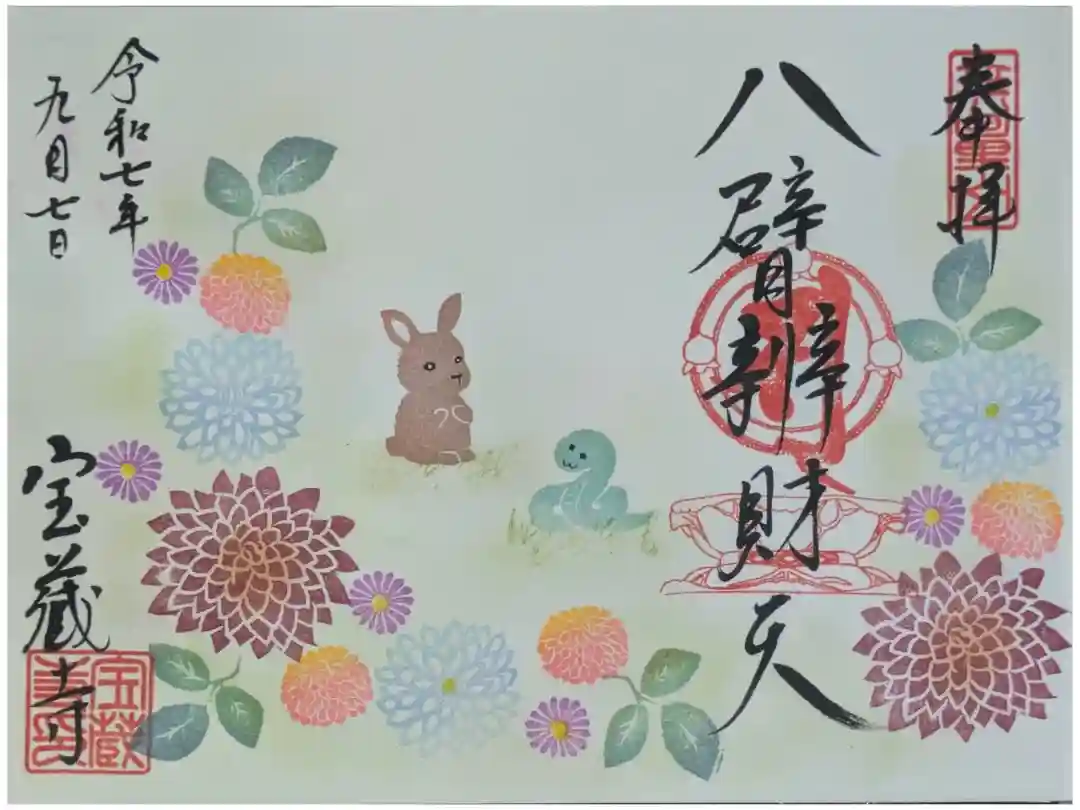 奉拝
八臂辨財天
令和七年
九月七日
宝蔵寺
宝蔵
寺印